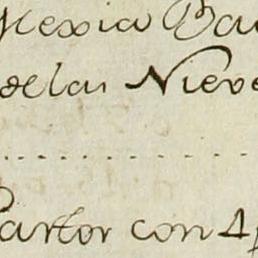 Alexia Ba
de las Nieve
Pastor con 4